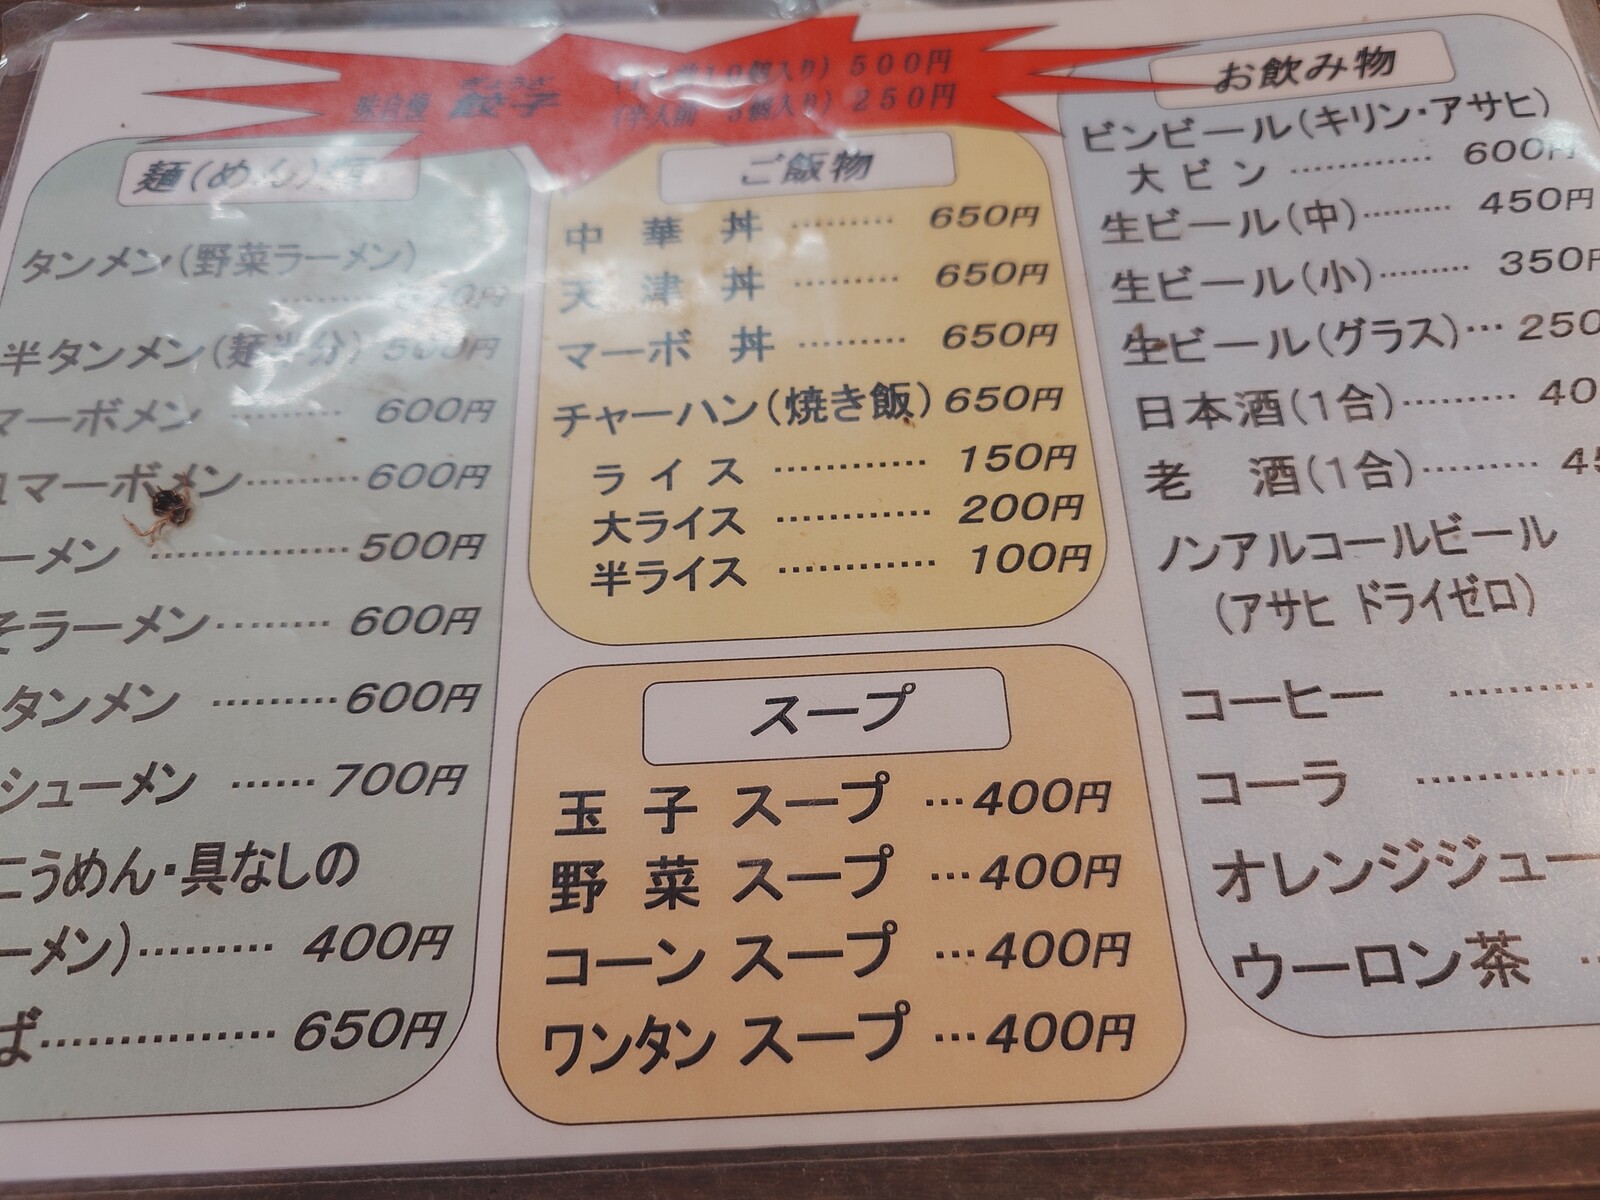 味自慢 餃子 ぎょうざ
10個入り) 500円
(半人前 5個入り) 250円
麺(めん)類
タンメン(野菜ラーメン)
半タンメン(麺半分) 500円
マーボメン ……… 600円
マーボメン ……… 600円
ーメン …………… 500円
そラーメン ……… 600円
タンメン ……… 600円
シューメン …… 700円
こうめん・具なしの
ーメン) ……… 400円
ば …………… 650円
ご飯物
中華丼 ……… 650円
天津丼 ……… 650円
マーボ丼 ……… 650円
チャーハン(焼き飯) 650円
ライス ………… 150円
大ライス ………… 200円
半ライス ………… 100円
スープ
玉子スープ … 400円
野菜スープ … 400円
コーンスープ … 400円
ワンタンスープ … 400円
お飲み物
ビンビール(キリン・アサヒ)
大ビン ………… 600円
生ビール(中) ……… 450円
生ビール(小) ……… 350円
生ビール(グラス) … 250
日本酒(1合) ……… 40
老酒(1合) ……… 45
ノンアルコールビール
(アサヒ ドライゼロ)
コーヒー ………
コーラ …………
オレンジジュー
ウーロン茶 …